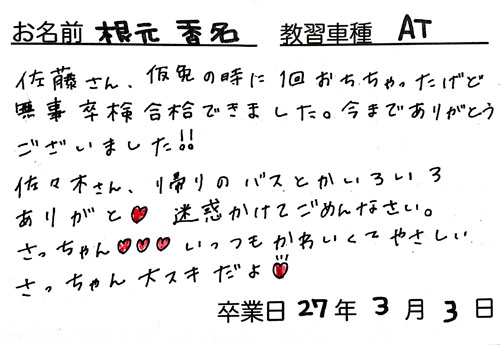 お名前 根元 香名 教習車種 AT
佐藤さん、仮免の時に1回おちちゃったけど
無事 卒検 合格できました。今までありがとう
ございました!!
佐々木さん、帰りのバスとかいろいろ
ありがと♥ 迷惑かけてごめんなさい。
さっちゃん♥♥♥いっつもかわいくてやさしい
さっちゃん大スキだよ♥
卒業日 27年 3月 3日